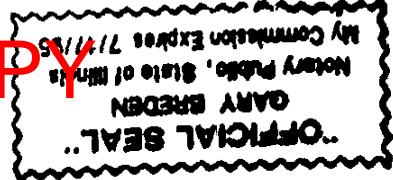 "OFFICIAL SEAL"
GARY BREDEN
Notary Public, State of Illinois
My Commission Expires
PY